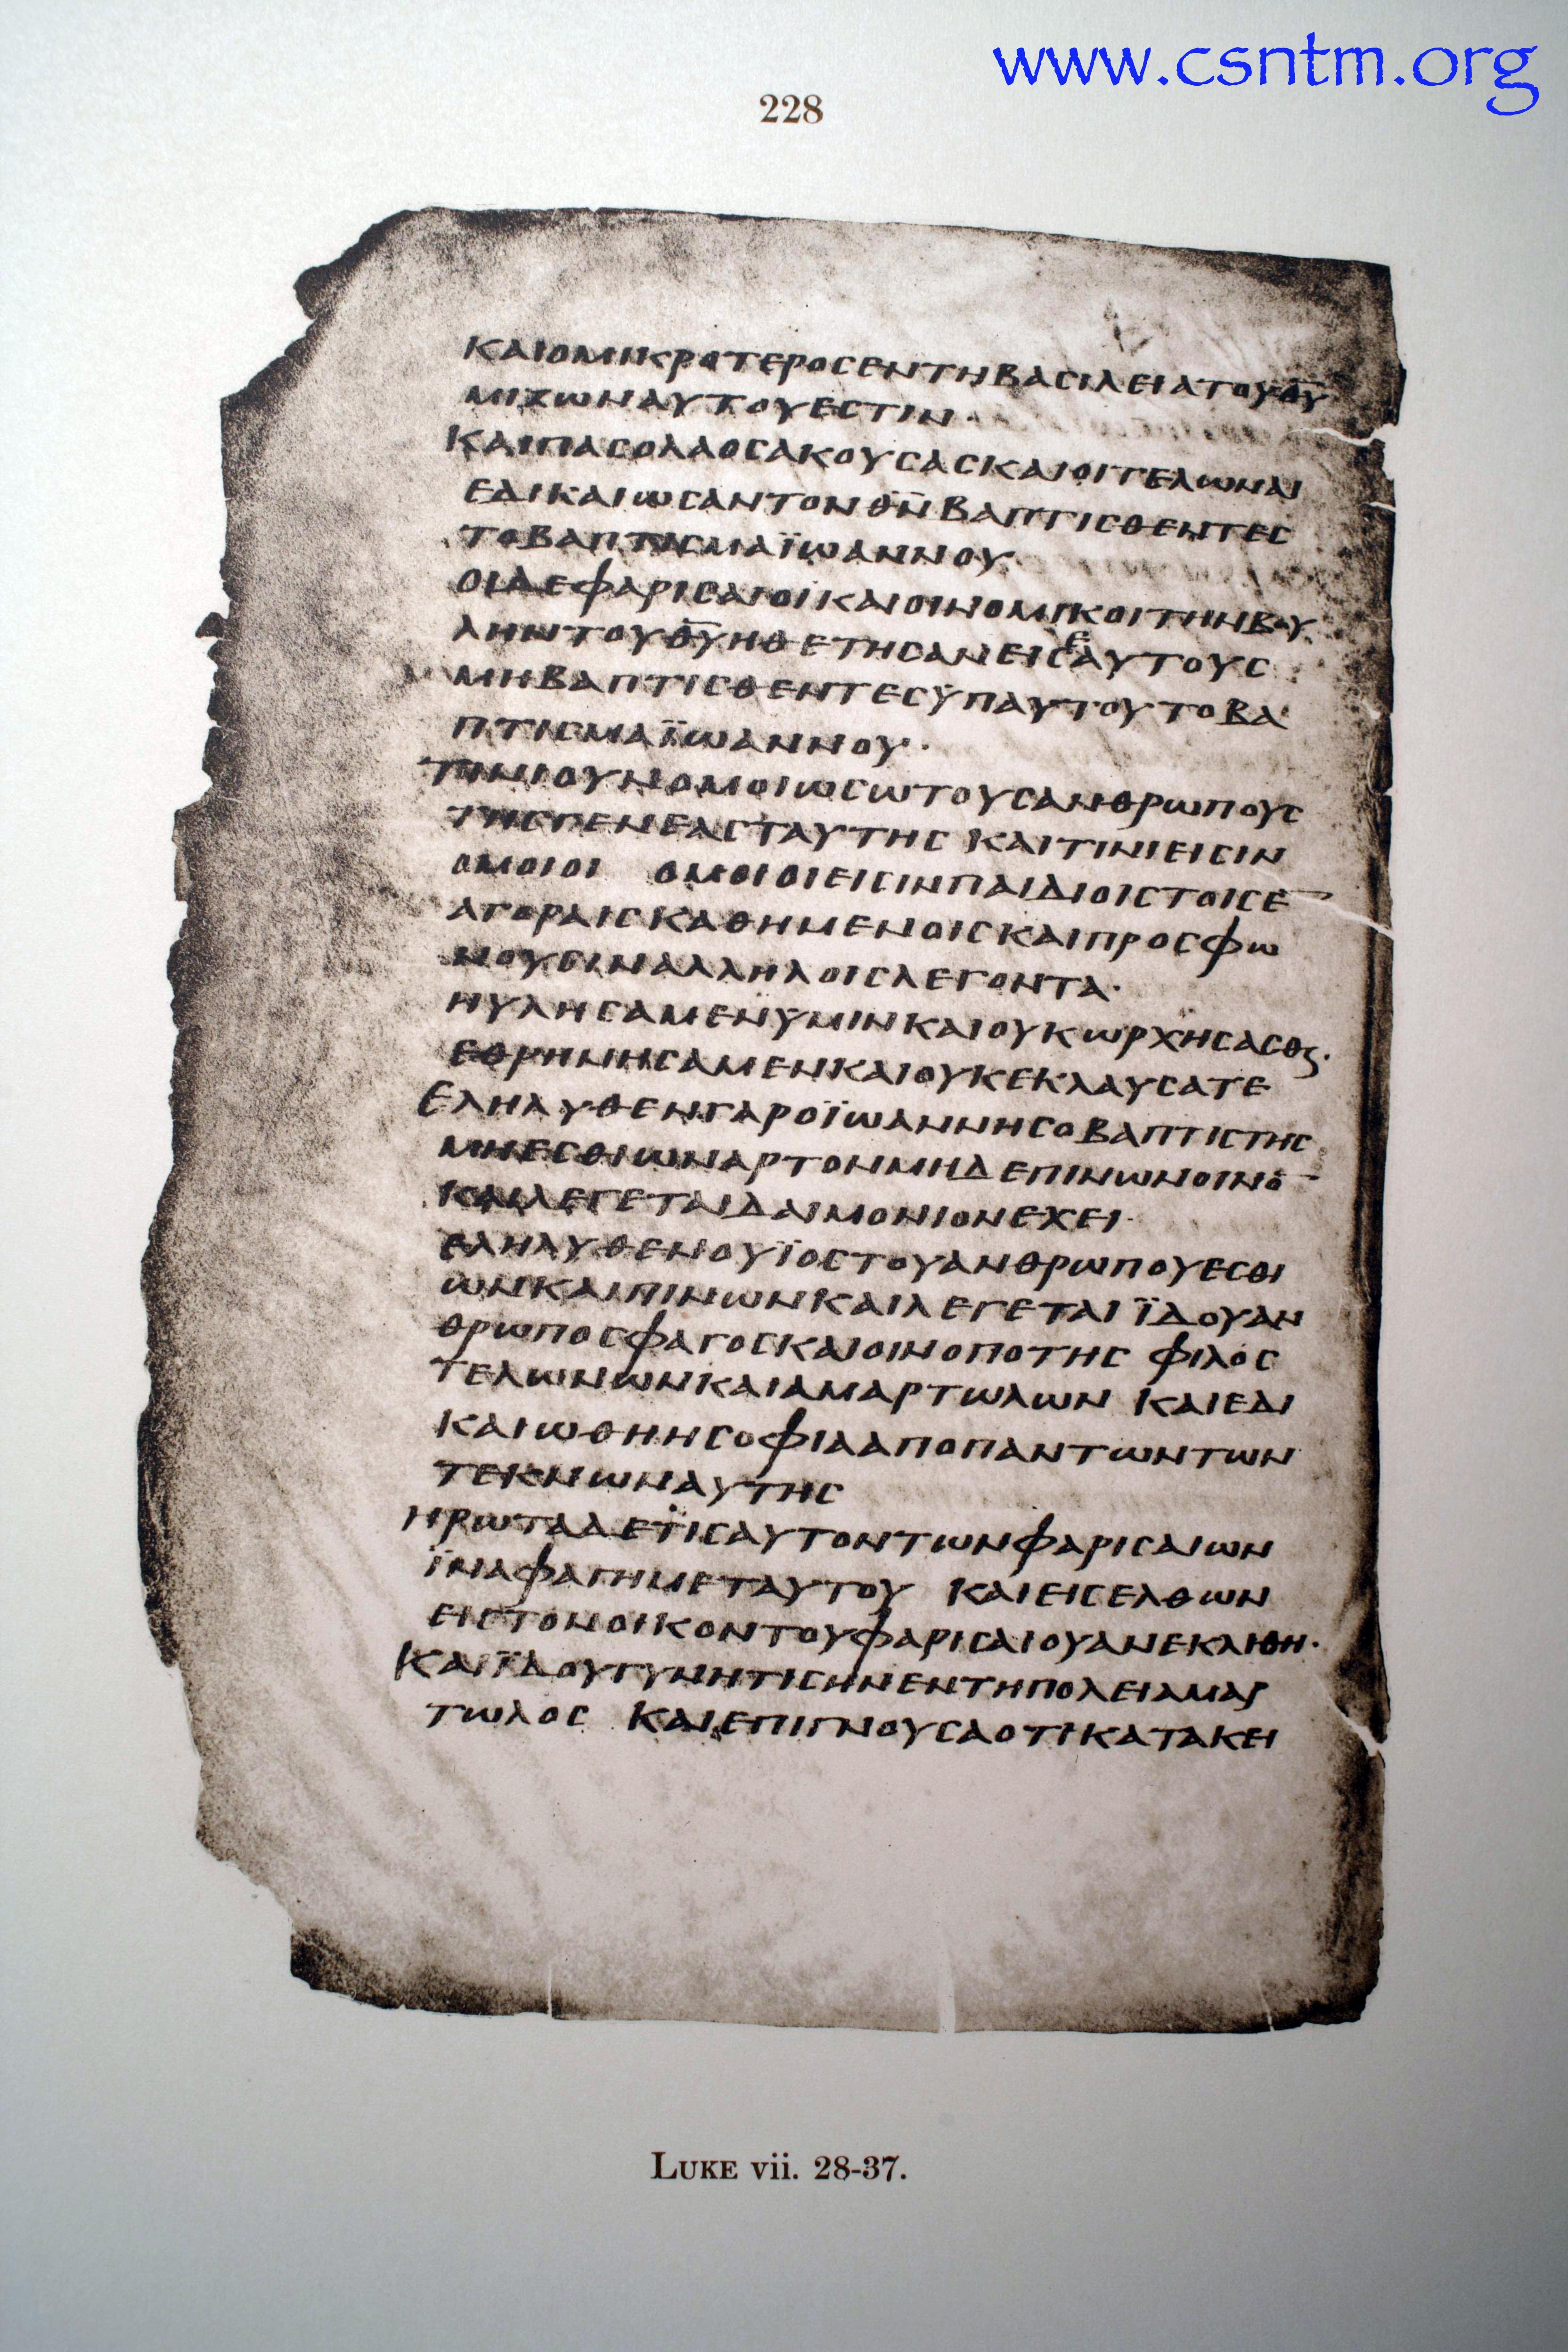 www.csntm.org
228
ΚΑΙΟΜΙΚΡΟΤΕΡΟCΕΝΤΗΒΑCΙΛΕΙΑΤΟΥΘ̅Υ̅
ΜΙΖΩΝΑΥΤΟΥΕCΤΙΝ·
ΚΑΙΠΑCΟΛΑΟCΑΚΟΥCΑCΚΑΙΟΙΤΕΛΩΝΑΙ
ΕΔΙΚΑΙΩCΑΝΤΟΝΘ̅Ν̅ΒΑΠΤΙCΘΕΝΤΕC
ΤΟΒΑΠΤΙCΜΑΪΩΑΝΝΟΥ·
ΟΙΔΕΦΑΡΙCΑΙΟΙΚΑΙΟΙΝΟΜΙΚΟΙΤΗΝΒΟΥ
ΛΗΝΤΟΥΘ̅Υ̅ΗΘΕΤΗCΑΝΕΙCΕΑΥΤΟΥC
ΜΗΒΑΠΤΙCΘΕΝΤΕCΫΠΑΥΤΟΥΤΟΒΑ
ΠΤΙCΜΑΪΩΑΝΝΟΥ·
ΤΙΝΙΟΥΝΟΜΟΙΩCΩΤΟΥCΑΝΘΡΩΠΟΥC
ΤΗCΓΕΝΕΑCΤΑΥΤΗC ΚΑΙΤΙΝΙΕΙCΙΝ
ΟΜΟΙΟΙ ΟΜΟΙΟΙΕΙCΙΝΠΑΙΔΙΟΙCΤΟΙCΕ̅
ΑΓΟΡΑΙCΚΑΘΗΜΕΝΟΙCΚΑΙΠΡΟCΦΩ
ΝΟΥCΙΝΑΛΛΗΛΟΙCΛΕΓΟΝΤΑ·
ΗΥΛΗCΑΜΕΝΫΜΙΝΚΑΙΟΥΚΩΡΧΗCΑCΘϛ·
ΕΘΡΗΝΗCΑΜΕΝΚΑΙΟΥΚΕΚΛΑΥCΑΤΕ
ΕΛΗΛΥΘΕΝΓΑΡΟΪΩΑΝΝΗCΟΒΑΠΤΙCΤΗC
ΜΗΕCΘΙΩΝΑΡΤΟΝΜΗΔΕΠΙΝΩΝΟΙΝΟ̅
ΚΑΙΛΕΓΕΤΑΙΔΑΙΜΟΝΙΟΝΕΧΕΙ·
ΕΛΗΛΥΘΕΝΟΥΪΟCΤΟΥΑΝΘΡΩΠΟΥΕCΘΙ
ΩΝΚΑΙΠΙΝΩΝΚΑΙΛΕΓΕΤΑΙΪΔΟΥΑΝ
ΘΡΩΠΟCΦΑΓΟCΚΑΙΟΙΝΟΠΟΤΗC ΦΙΛΟC
ΤΕΛΩΝΩΝΚΑΙΑΜΑΡΤΩΛΩΝ ΚΑΙΕΔΙ
ΚΑΙΩΘΗΗCΟΦΙΑΑΠΟΠΑΝΤΩΝΤΩΝ
ΤΕΚΝΩΝΑΥΤΗC
ΗΡΩΤΑΔΕΤΙCΑΥΤΟΝΤΩΝΦΑΡΙCΑΙΩΝ
ΪΝΑΦΑΓΗΜΕΤΑΥΤΟΥ ΚΑΙΕΙCΕΛΘΩΝ
ΕΙCΤΟΝΟΙΚΟΝΤΟΥΦΑΡΙCΑΙΟΥΑΝΕΚΛΙΘΗ·
ΚΑΙΪΔΟΥΓΥΝΗΤΙCΗΝΕΝΤΗΠΟΛΕΙΑΜΑΡ
ΤΩΛΟC ΚΑΙΕΠΙΓΝΟΥCΑΟΤΙΚΑΤΑΚΕΙ
LUKE vii. 28-37.